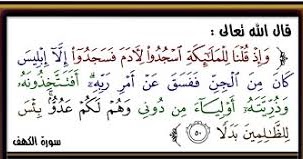 قال الله تعالى :
﴿ وَإِذْ قُلْنَا لِلْمَلَٰٓئِكَةِ ٱسْجُدُوا۟ لِءَادَمَ فَسَجَدُوٓا۟ إِلَّآ إِبْلِيسَ
كَانَ مِنَ ٱلْجِنِّ فَفَسَقَ عَنْ أَمْرِ رَبِّهِۦٓ ۗ أَفَتَتَّخِذُونَهُۥ
وَذُرِّيَّتَهُۥٓ أَوْلِيَآءَ مِن دُونِى وَهُمْ لَكُمْ عَدُوٌّۢ ۚ بِئْسَ
لِلظَّٰلِمِينَ بَدَلًا ٥٠ ﴾
سورة الكهف